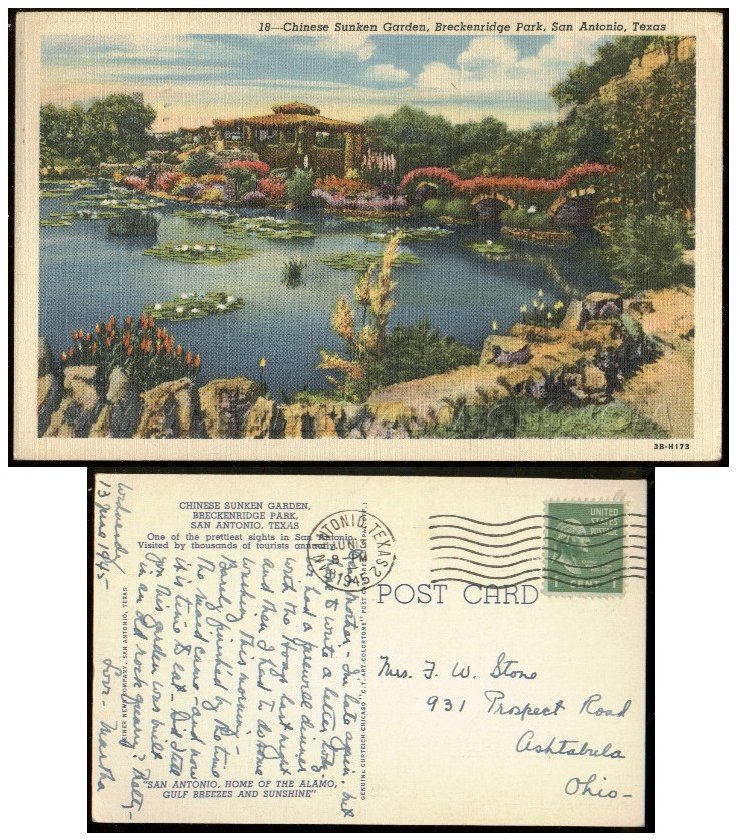 18—Chinese Sunken Garden, Breckenridge Park, San Antonio, Texas
3B-H173
CHINESE SUNKEN GARDEN,
BRECKENRIDGE PARK,
SAN ANTONIO, TEXAS
One of the prettiest sights in San Antonio.
Visited by thousands of tourists annually.
Wednesday
13 June 1945-
Dear Mother - I'm late again, but
to write a letter today.
had a farewell dinner
with the Hoags last night
and then I had to do some
washing this morning -
Barely finished by the time
the maid came - and now
it is time to eat - Did I tell
you this garden was built
in an old rock quarry? Pretty -
Love - Martha
NEWS COMPANY, SAN ANTONIO, TEXAS
"SAN ANTONIO, HOME OF THE ALAMO,
GULF BREEZES AND SUNSHINE"
GENUINE CURTEICH-CHICAGO "C.T. ART-COLORTONE" POST CARD
SAN ANTONIO, TEXAS 2
JUN 13
8-PM
1945
UNITED
STATES
POSTAGE
1 CENT 1
POST CARD
Mrs. F. W. Stone
931 Prospect Road
Ashtabula
Ohio-